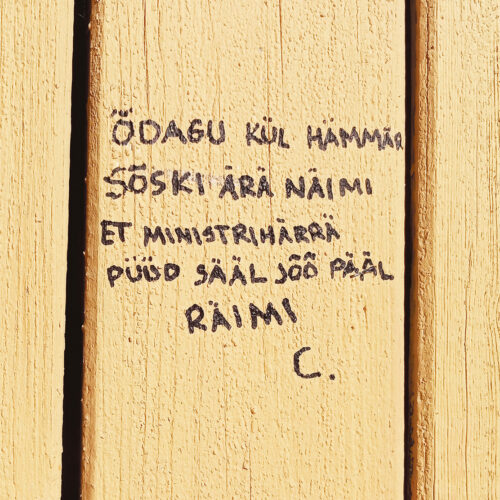 ÕDAGU KÜL HÄMMÄR
SÕSKI ÄRÄ NÄIMI
ET MINISTRIHÄRRÄ
PÜÜD SÄÄL JÕÕ PÄÄL
RÄIMI
C.